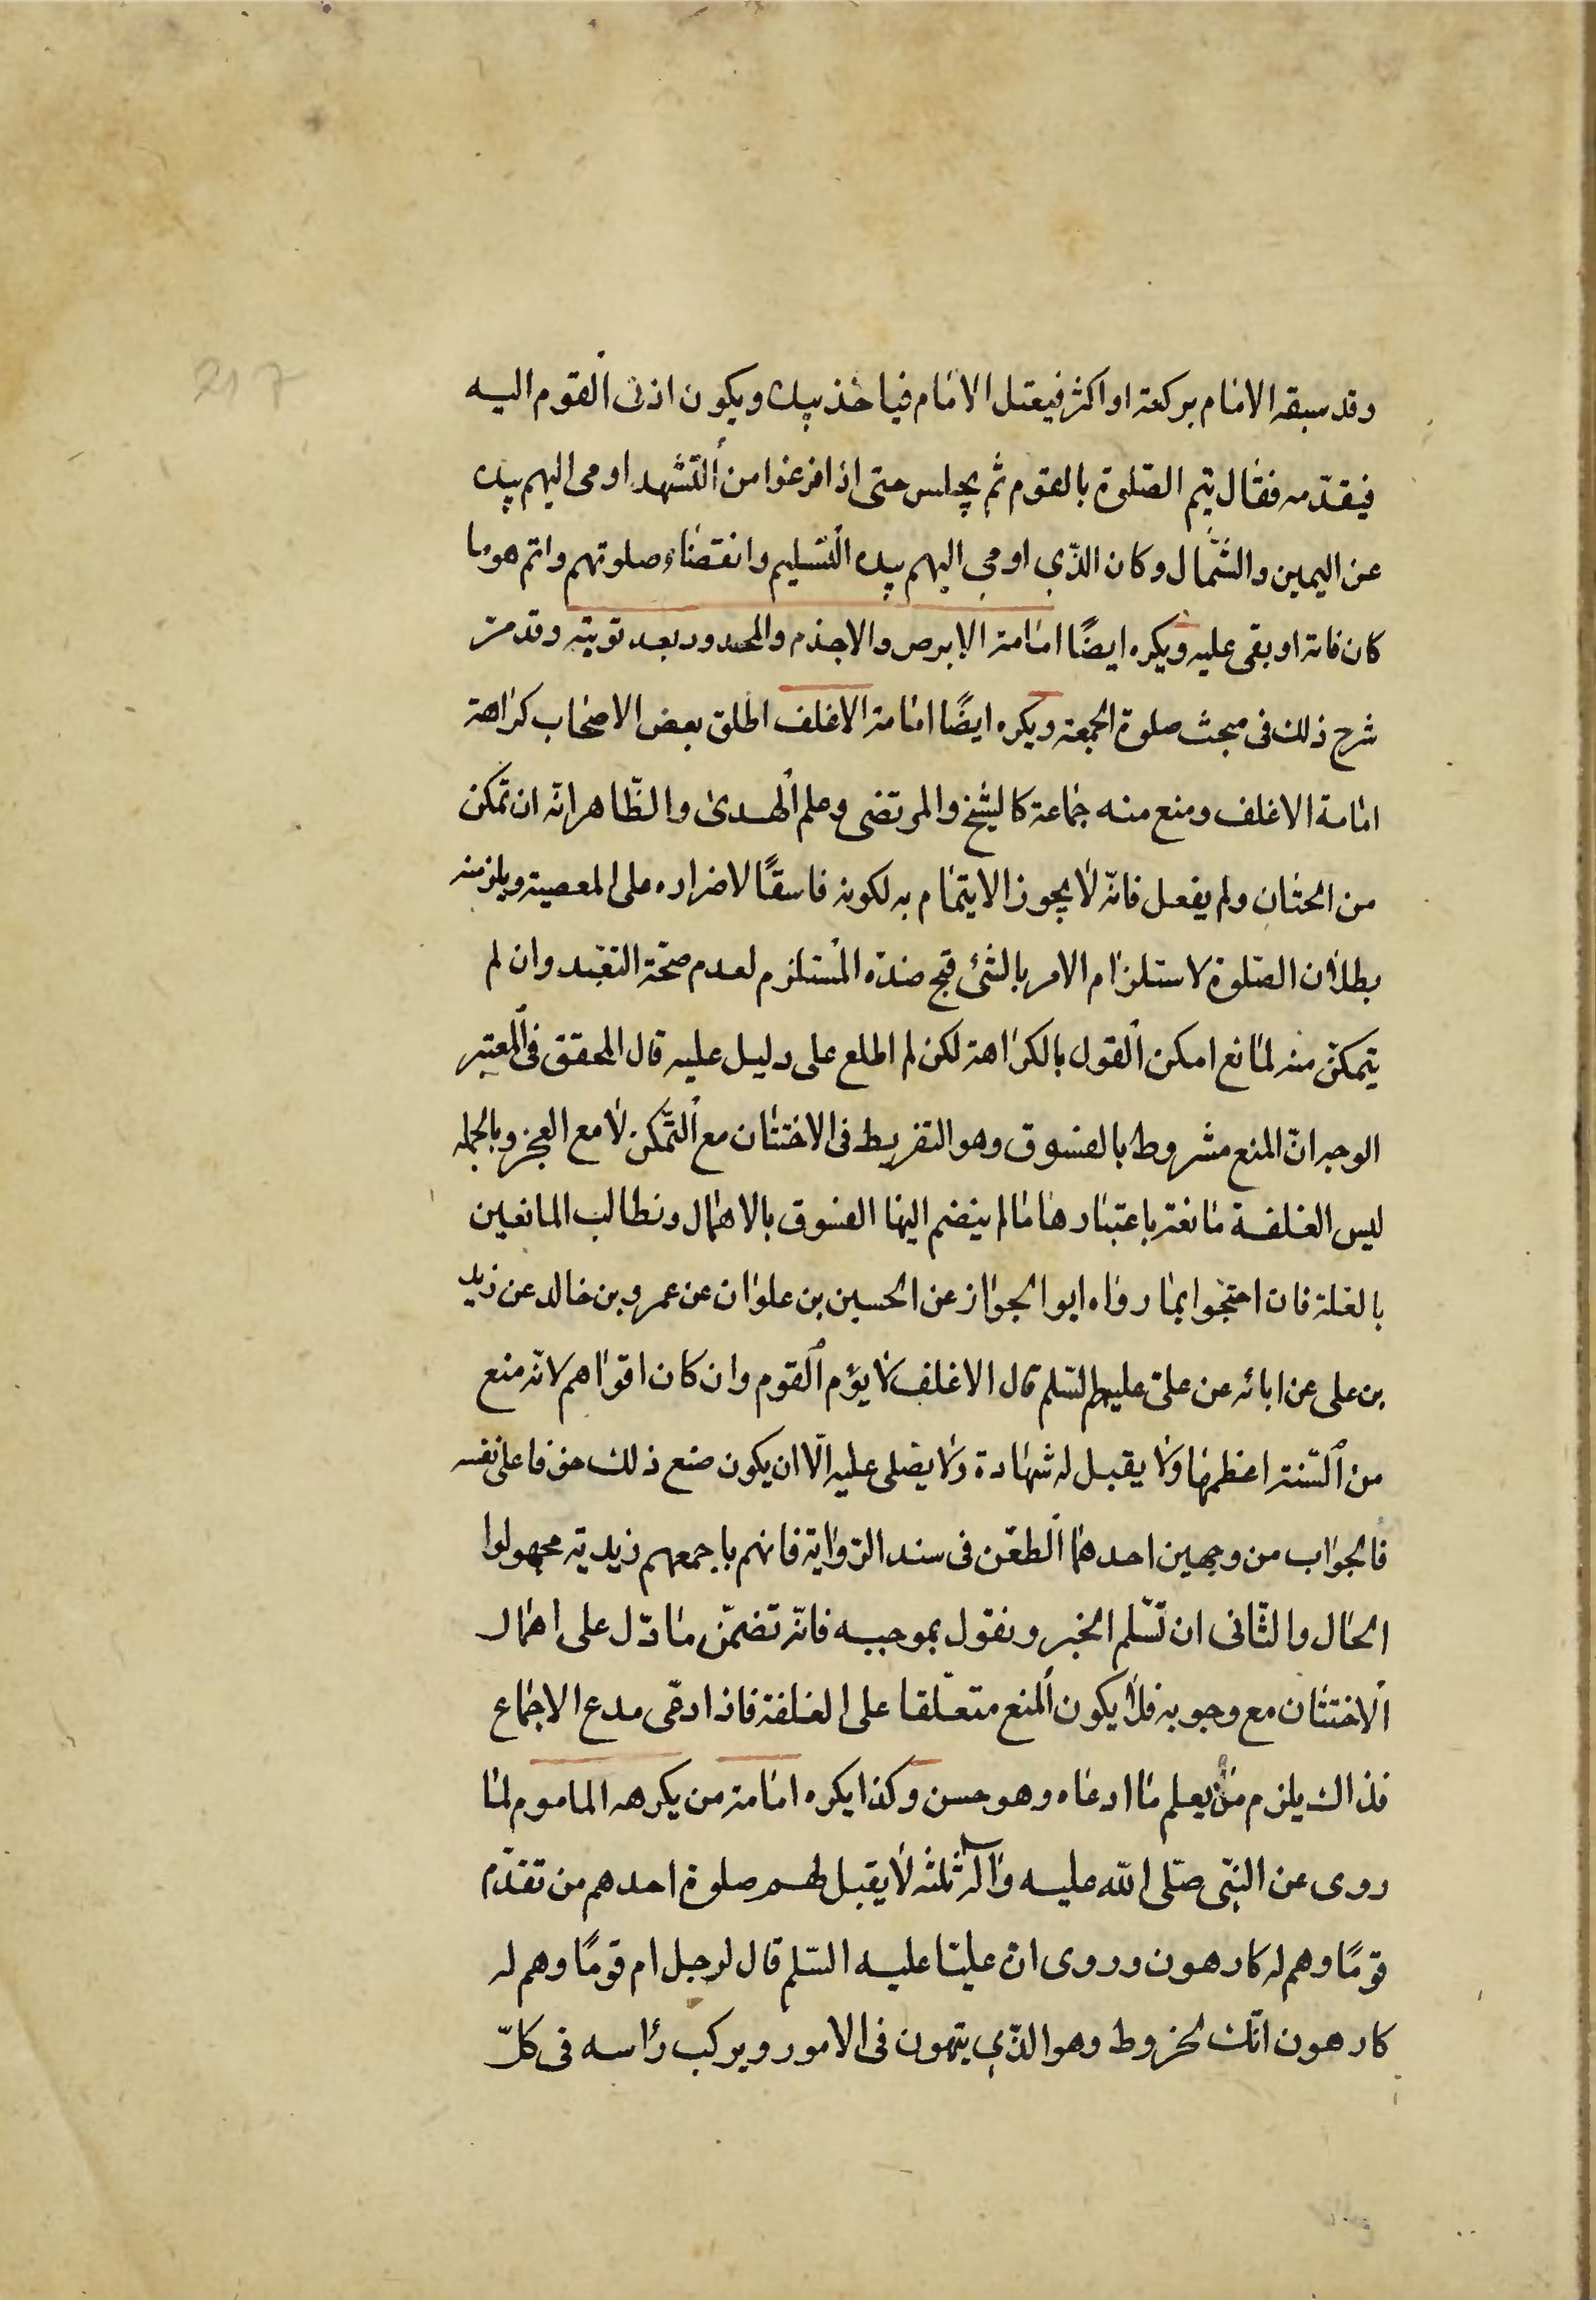 217
وقد سبقه الامام بركعة او اكثر فيعتل الامام فياخذ بيده ويكون ادنى القوم اليه
فيقدّمه فقال يتم الصّلوة بالقوم ثم يجلس حتى اذا فرغوا من التشهد اومى اليهم بيده
عن اليمين والشّمال وكان الذّي اومي اليهم بيده التسليم وانقضاء صلوتهم واتم هو ما
كان فاته او بقى عليه ويكره ايضًا امامة الابرص والاجذم والمحدود بعد توبته وقد مرّ
شرح ذلك فى مبحث صلوة الجمعة ويكره ايضًا امامة الاغلف اطلق بعض الاصحاب كراهة
امامة الاغلف ومنع منه جماعة كالشيخ والمرتضى وعلم الهدى والظّاهر انّه ان تمكن
من الختان ولم يفعل فانّه لا يجوز الايتمام به لكونه فاسقًا لاضراره على المعصية ويلزمنه
بطلان الصّلوة لاستلزام الامر بالشئ قبح ضدّه المستلزم لعدم صحّة التعبّد وان لم
يتمكّن منه لمانع امكن القول بالكراهة لكن لم اطلع على دليل عليه قال المحقق فى المعتبر
الوجه انّ المنع مشروط بالفسوق وهو التفريط فى الاختتان مع التّمكن لا مع العجز وبالجمله
ليس الغلفة مانعة باعتبارها ما لم ينضم اليها الفسوق بالاهمال ونطالب المانعين
بالعلة فان احتجّوا بما رواه ابو الجواز عن الحسين بن علوان عن عمرو بن خالد عن زيد
بن على عن ابائه عن علىّ عليهم السّلم قال الاغلف لا يؤم القوم وان كان اقواهم لانّه منع
من السّنة اعظمها ولا يقبل له شهادة ولا يصّلى عليه الّا ان يكون صنع ذلك خوفا على نفسه
فالجواب من وجهين احدهما الطعن فى سند الرّواية فانهم باجمعهم زيديّه مجهولوا
الحال والثّانى ان نسّلم الخبر ونقول بموجبه فانّه تضمّن ما دّل على اهمال
الاختتان مع وجوبه فلا يكون المنع متعلّقا على الغلفة فاذا ادعّى مدع الاجماع
فذاك يلزم من يعلم ما ادعاه وهو حسن وكذا يكره امامة من يكرهه الماموم لما
روى عن النبّى صلّى الله عليه واله ثلثه لا يقبل لهم صلوة احدهم من تقدّم
قومًا وهم له كارهون وروى انّ عليّا عليه السّلم قال لرجل ام قومًا وهم له
كارهون انّك لخروط وهو الذّي يتهون فى الامور ويركب رأسه فى كلّ